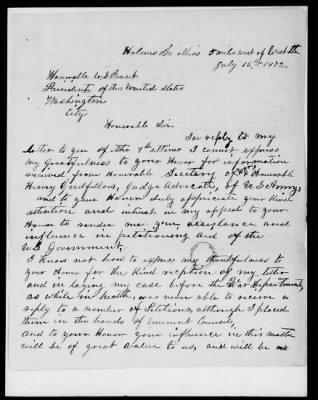 Holmes Co Miss 5 miles west of West Stn
July 16th 1872.
Honorable U.S. Grant
President of the United States
Washington
City
Honorable Sir
In reply to my
letter to you of the 7th I cannot express
my greatfulness to your Honor for information
received from Honorable Secretary of Honorable
Henry Goodfellow, Judge Advocate, of U.S. Army
and to your Honor duly appreciate your kind
attention and interest in my appeal to your
Honor to render me your assistance and
influence in petitioning aid of the
U.S. Government.
I know not how to express my thankfulness to
your Honor for the kind reception of my letter
and in laying my case before the War Department,
as while in health, was never able to receive a
reply to a number of Petitions, although I placed
them in the hands of eminent Councils,
and to your Honor your influence in this matter
will be of great value to us, and will be